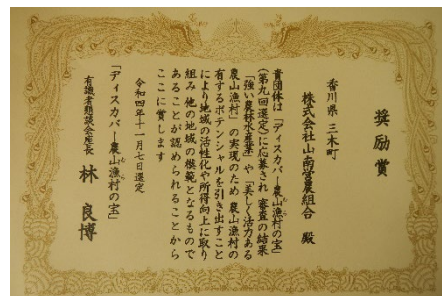 奨励賞
香川県 三木町
株式会社山南営農組合 殿
貴団体は「ディスカバー農山漁村の宝」
(第九回選定)に応募され 審査の結果
「強い農林水産業」や「美しく活力ある
農山漁村」の実現のため 農山漁村の
有するポテンシャルを引き出すこと
により地域の活性化や所得向上に取り
組み 他の地域の模範となるもので
あることが認められることから
ここに賞します
令和四年十一月七日選定
「ディスカバー農山漁村の宝」
有識者懇談会座長 林 良博